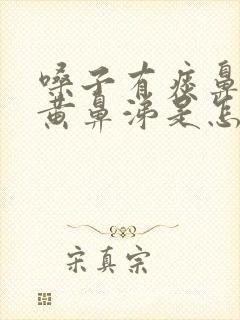 嗓子有痰鼻
黄鼻涕是怎
宋真宗